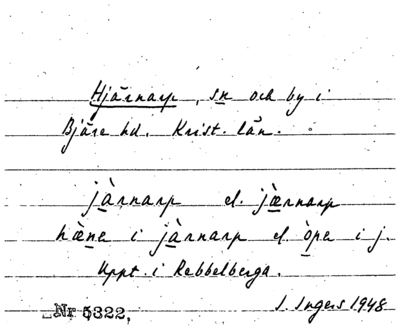 Hjärnarp, sn och by i
Bjäre hd. Krist. län.
jàrnarp el. jæ̀rnarp
hæ̀ne i jàrnarp el. òpe i j.
Uppt. i Rebbelberga.
Nr 5322, I. Ingers 1948